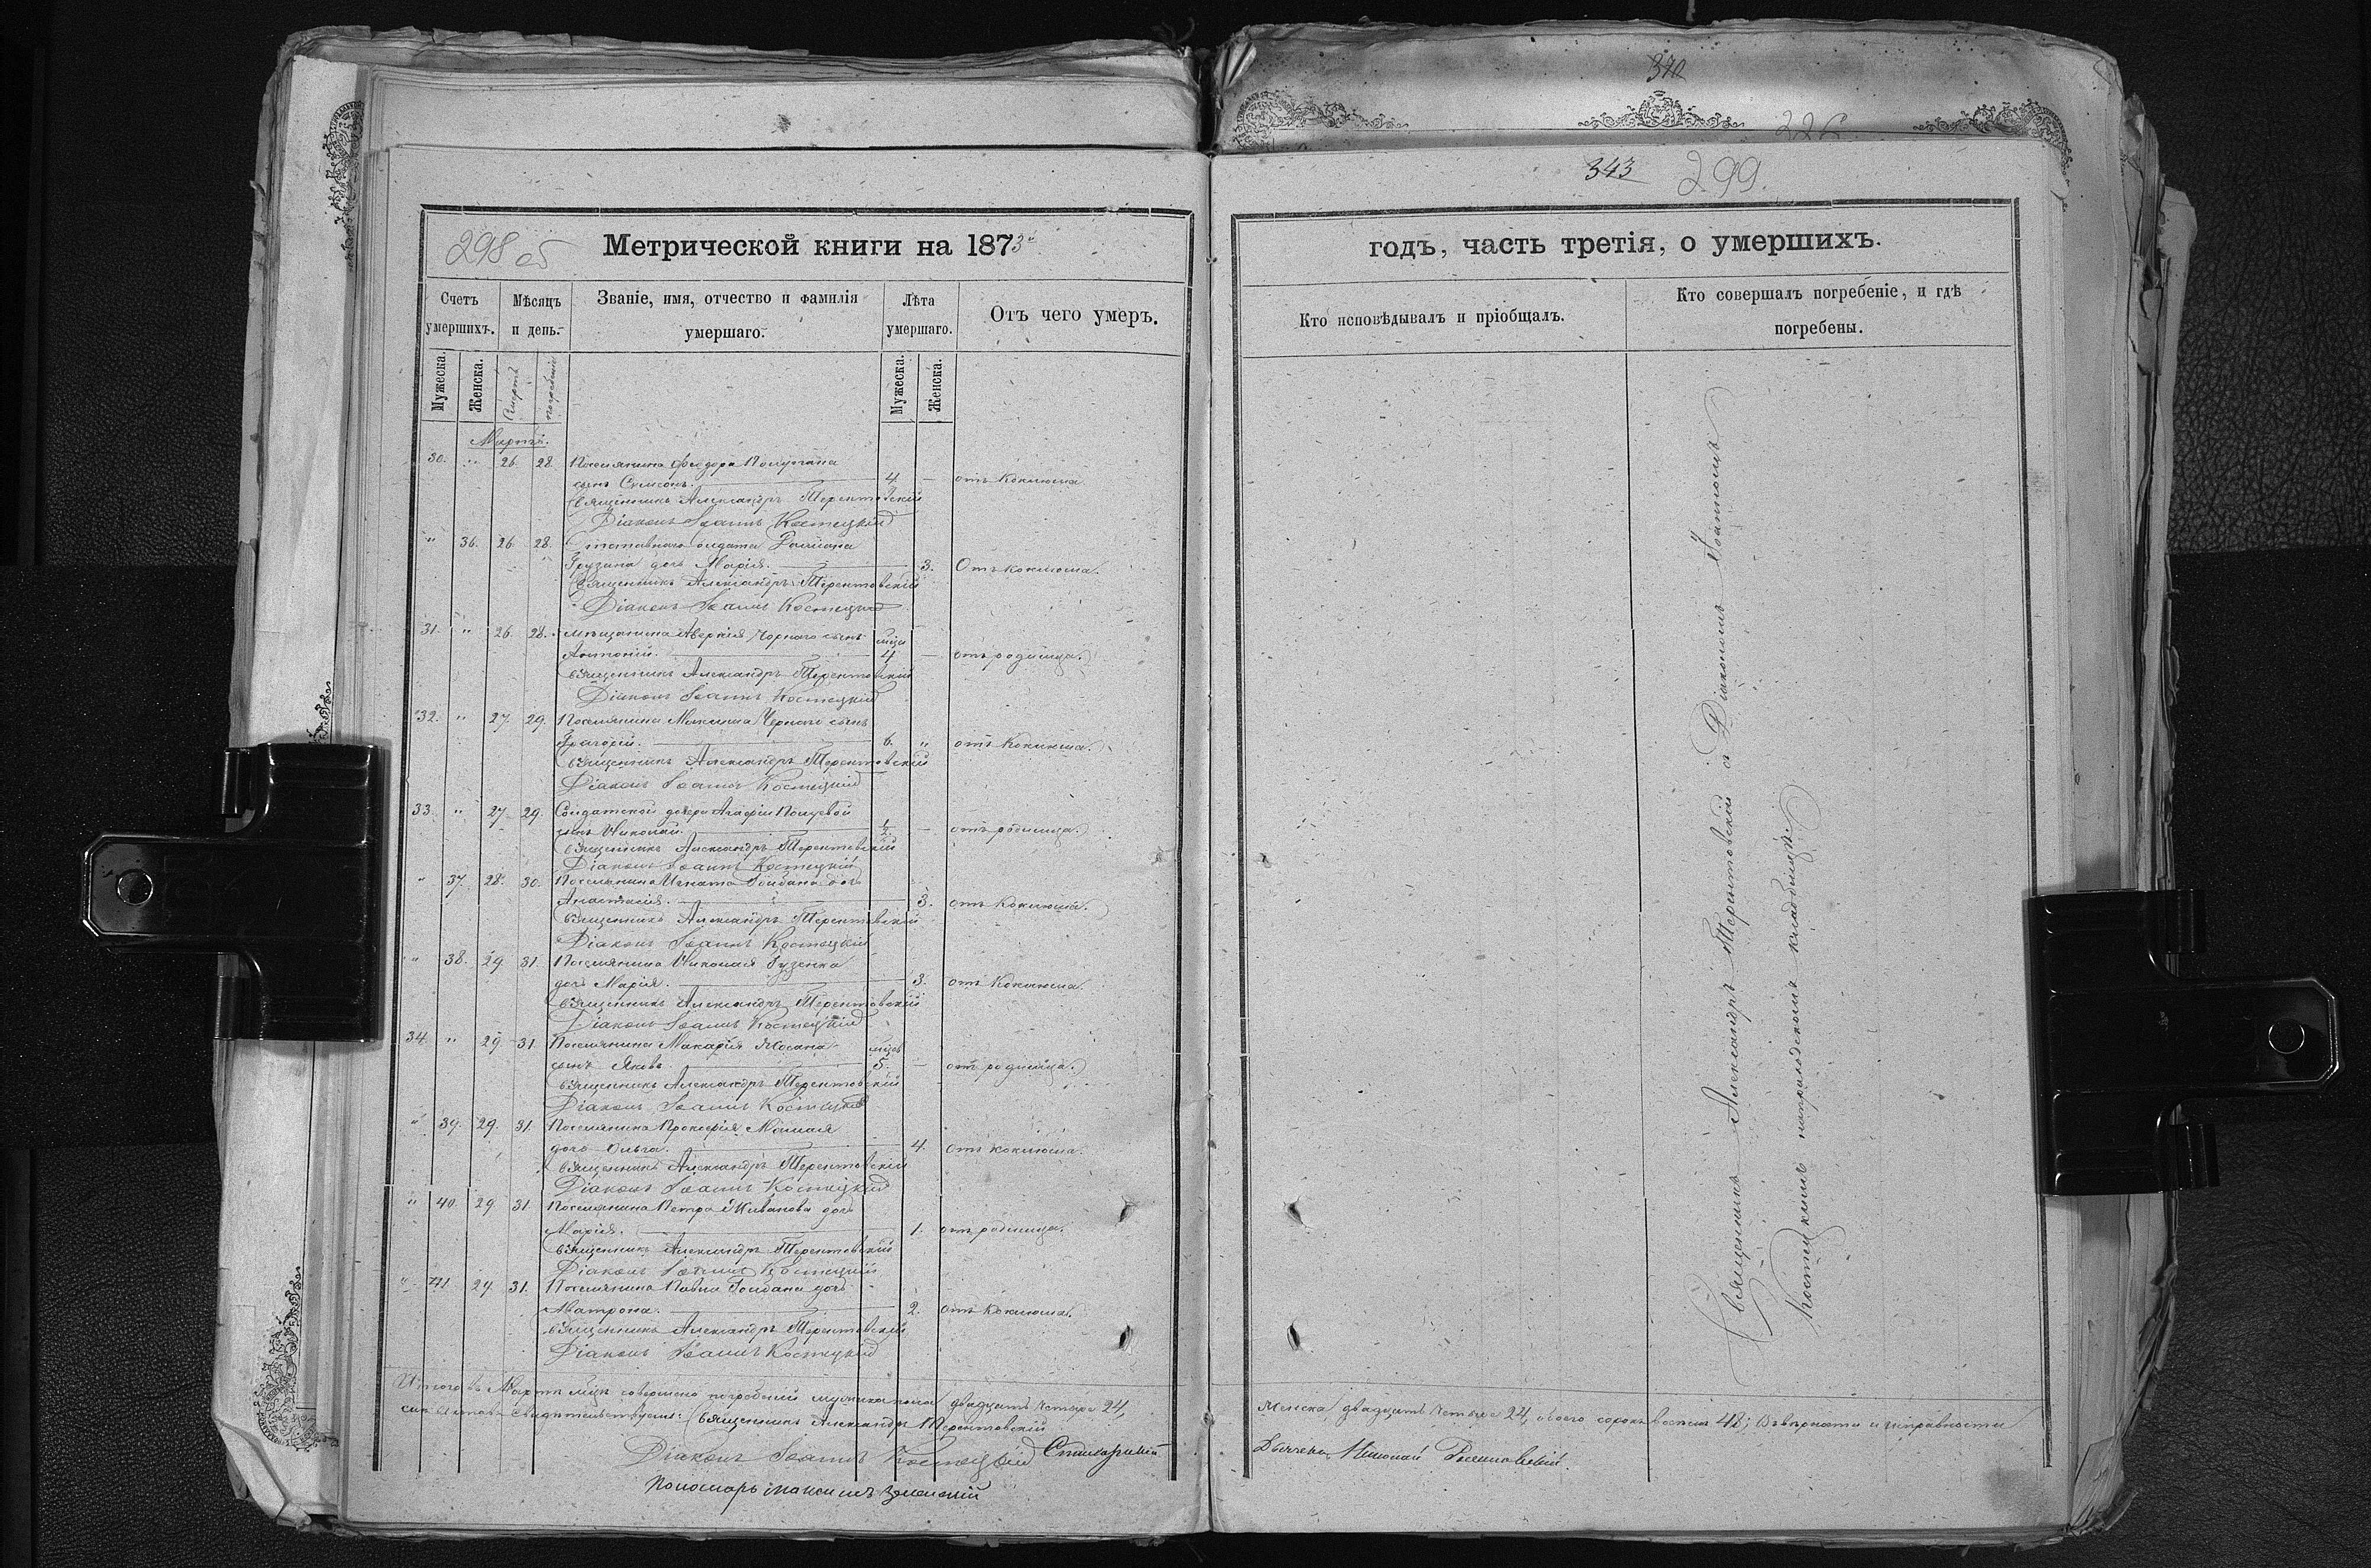 298 об
Метрической книги на 1873й
Счетъ умершихъ.
Мѣсяцъ и день.
Званіе, имя, отчество и фамилія умершаго.
Лѣта умершаго.
Отъ чего умеръ.
Мужеска.
Женска.
Смерть
погребенія
Мужеска.
Женска.
Мартъ.
30. " 26. 28. Поселянина Феодора
сынъ Симеонъ. 4 — отъ коклюша
Священникъ Александръ Терентовскій
Діаконъ Іоаннъ Костецкій
" 36. 26. 28. солдата
Грузина дочь Марія. 3. Отъ коклюша.
Священникъ Александръ Терентовскій
Діаконъ Іоаннъ Костецкій
31. " 26. 28. мѣщанина Аверкія Чорнаго сынъ мѣц
Антоній. 4 — отъ родимца.
Священникъ Александръ Терентовскій
Діаконъ Іоаннъ Костецкій
32. " 27. 29. Поселянина Максима Чернаго сынъ
Григорій. 6. " отъ коклюша.
Священникъ Александръ Терентовскій
Діаконъ Іоаннъ Костецкій
33. " 27. 29. Солдатской дочери Агафіи
сынъ Николай. 1/2 — отъ родимца.
Священникъ Александръ Терентовскій
Діаконъ Іоаннъ Костецкій
" 37. 28. 30. Поселянина Игната Голбана дочь
Анастасія. 3. отъ коклюша.
Священникъ Александръ Терентовскій
Діаконъ Іоаннъ Костецкій
" 38. 29 31. Поселянина Николая Гузенка
дочь Марія. 3. отъ коклюша.
Священникъ Александръ Терентовскій
Діаконъ Іоаннъ Костецкій
34. " 29. 31. Поселянина Макарія мѣцъ
сынъ Яковъ. 5. — отъ родимца.
Священникъ Александръ Терентовскій
Діаконъ Іоаннъ Костецкій
" 39. 29. 31. Поселянина Прокофія
дочь Ольга. 4. отъ коклюша.
Священникъ Александръ Терентовскій
Діаконъ Іоаннъ Костецкій
" 40. 29 31. Поселянина Петра дочь
Марія. 1. отъ родимца.
Священникъ Александръ Терентовскій
Діаконъ Іоаннъ Костецкій
" 41 29 31. Поселянина Павла Голбана дочь
Матрона. 2. отъ коклюша.
Священникъ Александръ Терентовскій
Діаконъ Іоаннъ Костецкій
Итого въ Мартѣ мцѣ совершено погребеній мужеска пола двадцать четыре 24,
сихъ актовъ свидѣтельствуемъ: Священникъ Александръ Терентовскій
Діаконъ Іоаннъ Костецкій
Пономарь
370
343 299.
годъ, часть третія, о умершихъ.
Кто исповѣдывалъ и пріобщалъ.
Кто совершалъ погребеніе, и гдѣ погребены.
Священникъ Александръ Терентовскій съ Діакономъ Іоанномъ
Костецкимъ на приходскомъ кладбищѣ.
Женска двадцать четыре 24, обоего сорокъ восемь 48; Въ вѣрности и исправности
Николай